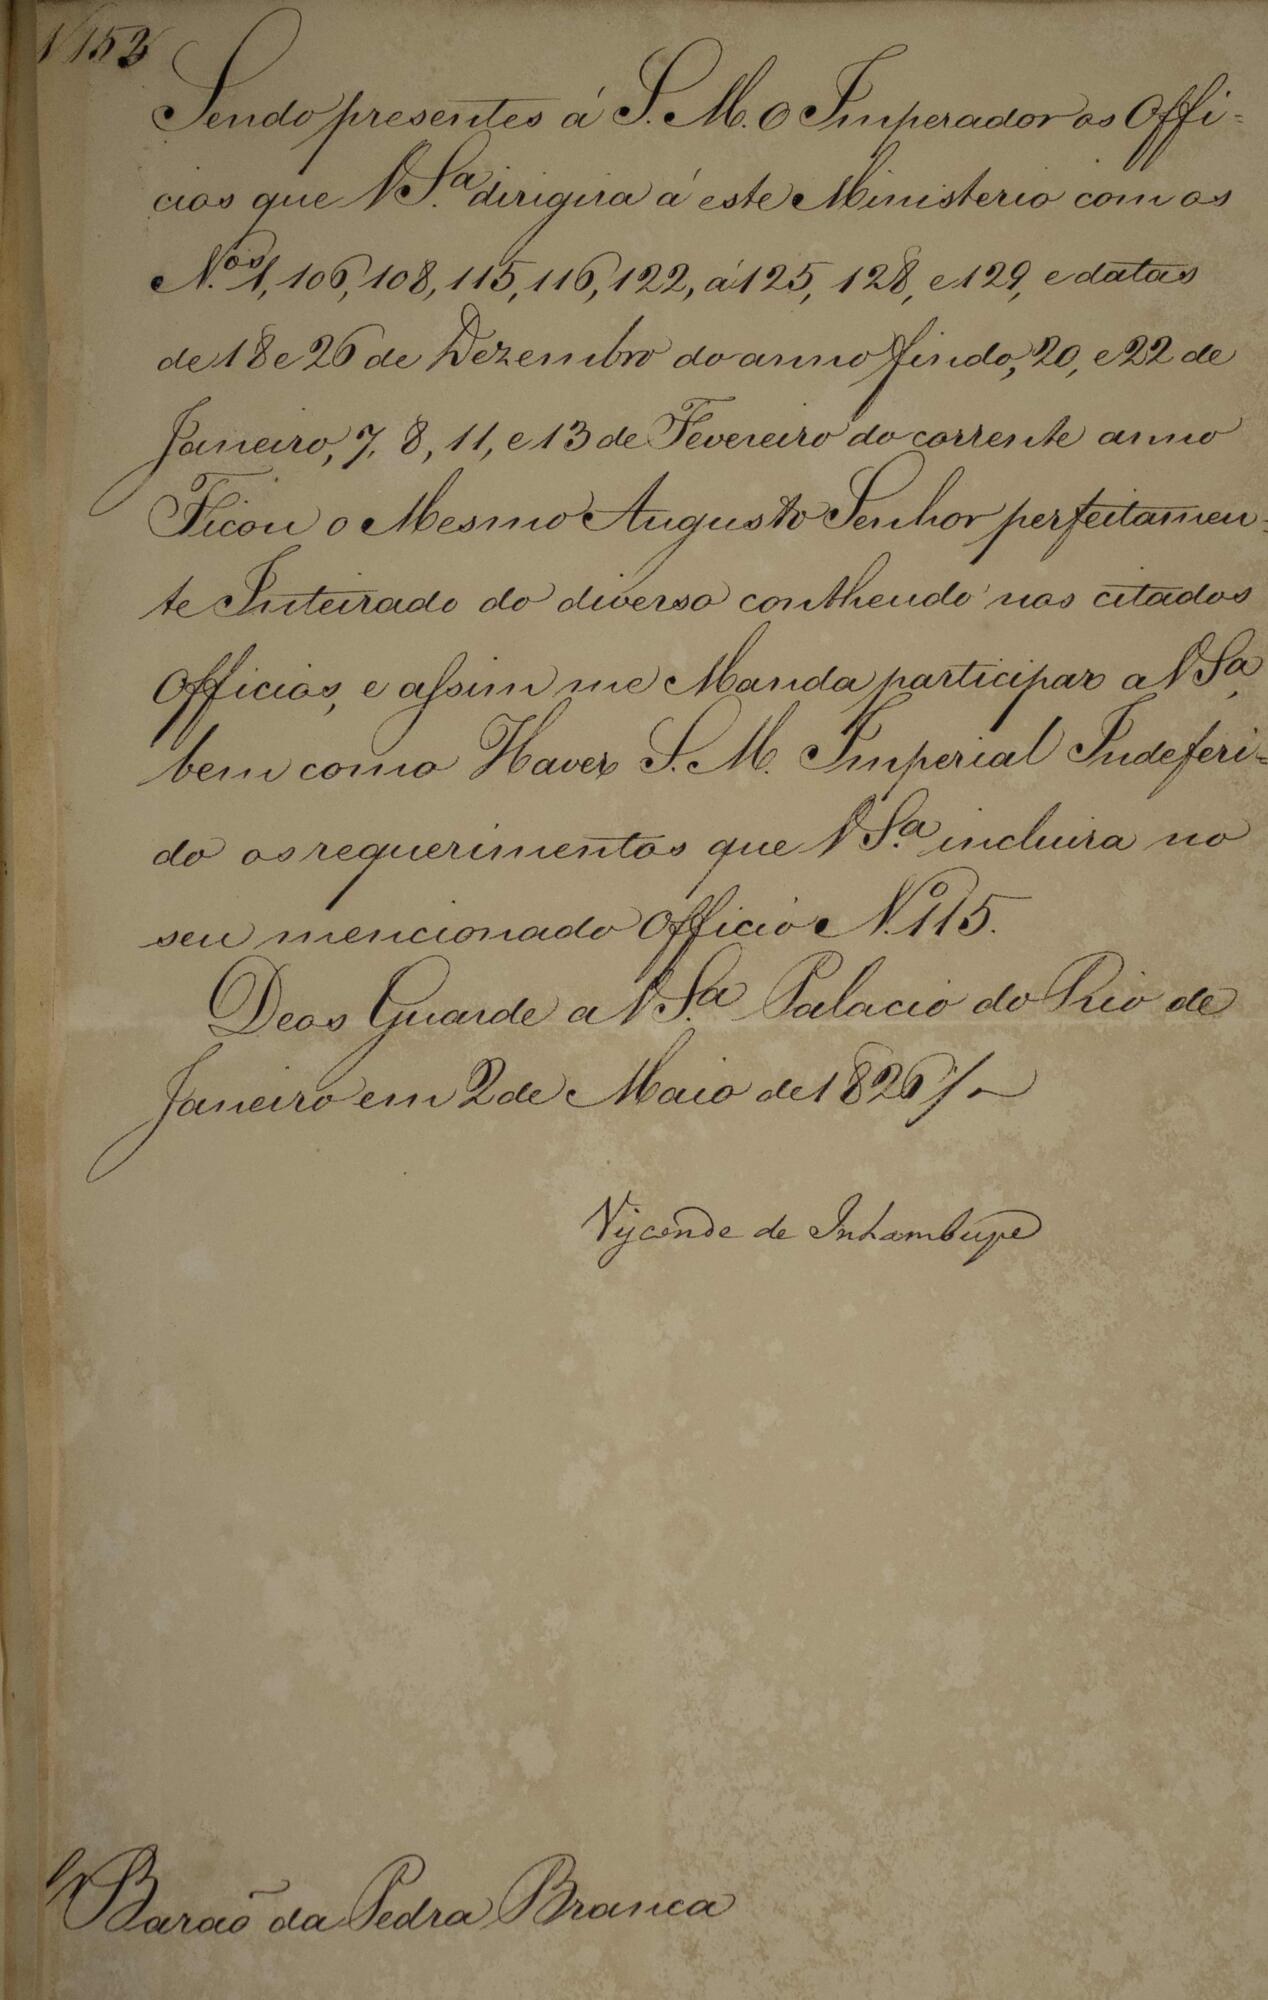 N 153
Sendo presentes á S. M. o Imperador os Offi=
cios que V S.ª dirigira á este Ministerio com os
N.ºs 1, 106, 108, 115, 116, 122, á 125, 128, e 129, e datas
de 18 e 26 de Dezembro do anno findo, 20, e 22 de
Janeiro, 7, 8, 11, e 13 de Fevereiro do corrente anno
Ficou o Mesmo Augusto Senhor perfeitamen=
te Inteirado do diverso conthendo nos citados
Officios, e assim me Manda participar a V Sª,
bem como Haver S. M. Imperial Indeferi=
do os requerimentos que V S.ª incluira no
seu mencionado Officio N.º 115.
Deos Guarde a V S.ª Palacio do Rio de
Janeiro em 2 de Maio de 1826 /~
Visconde de Inhambupe
Barão da Pedra Branca